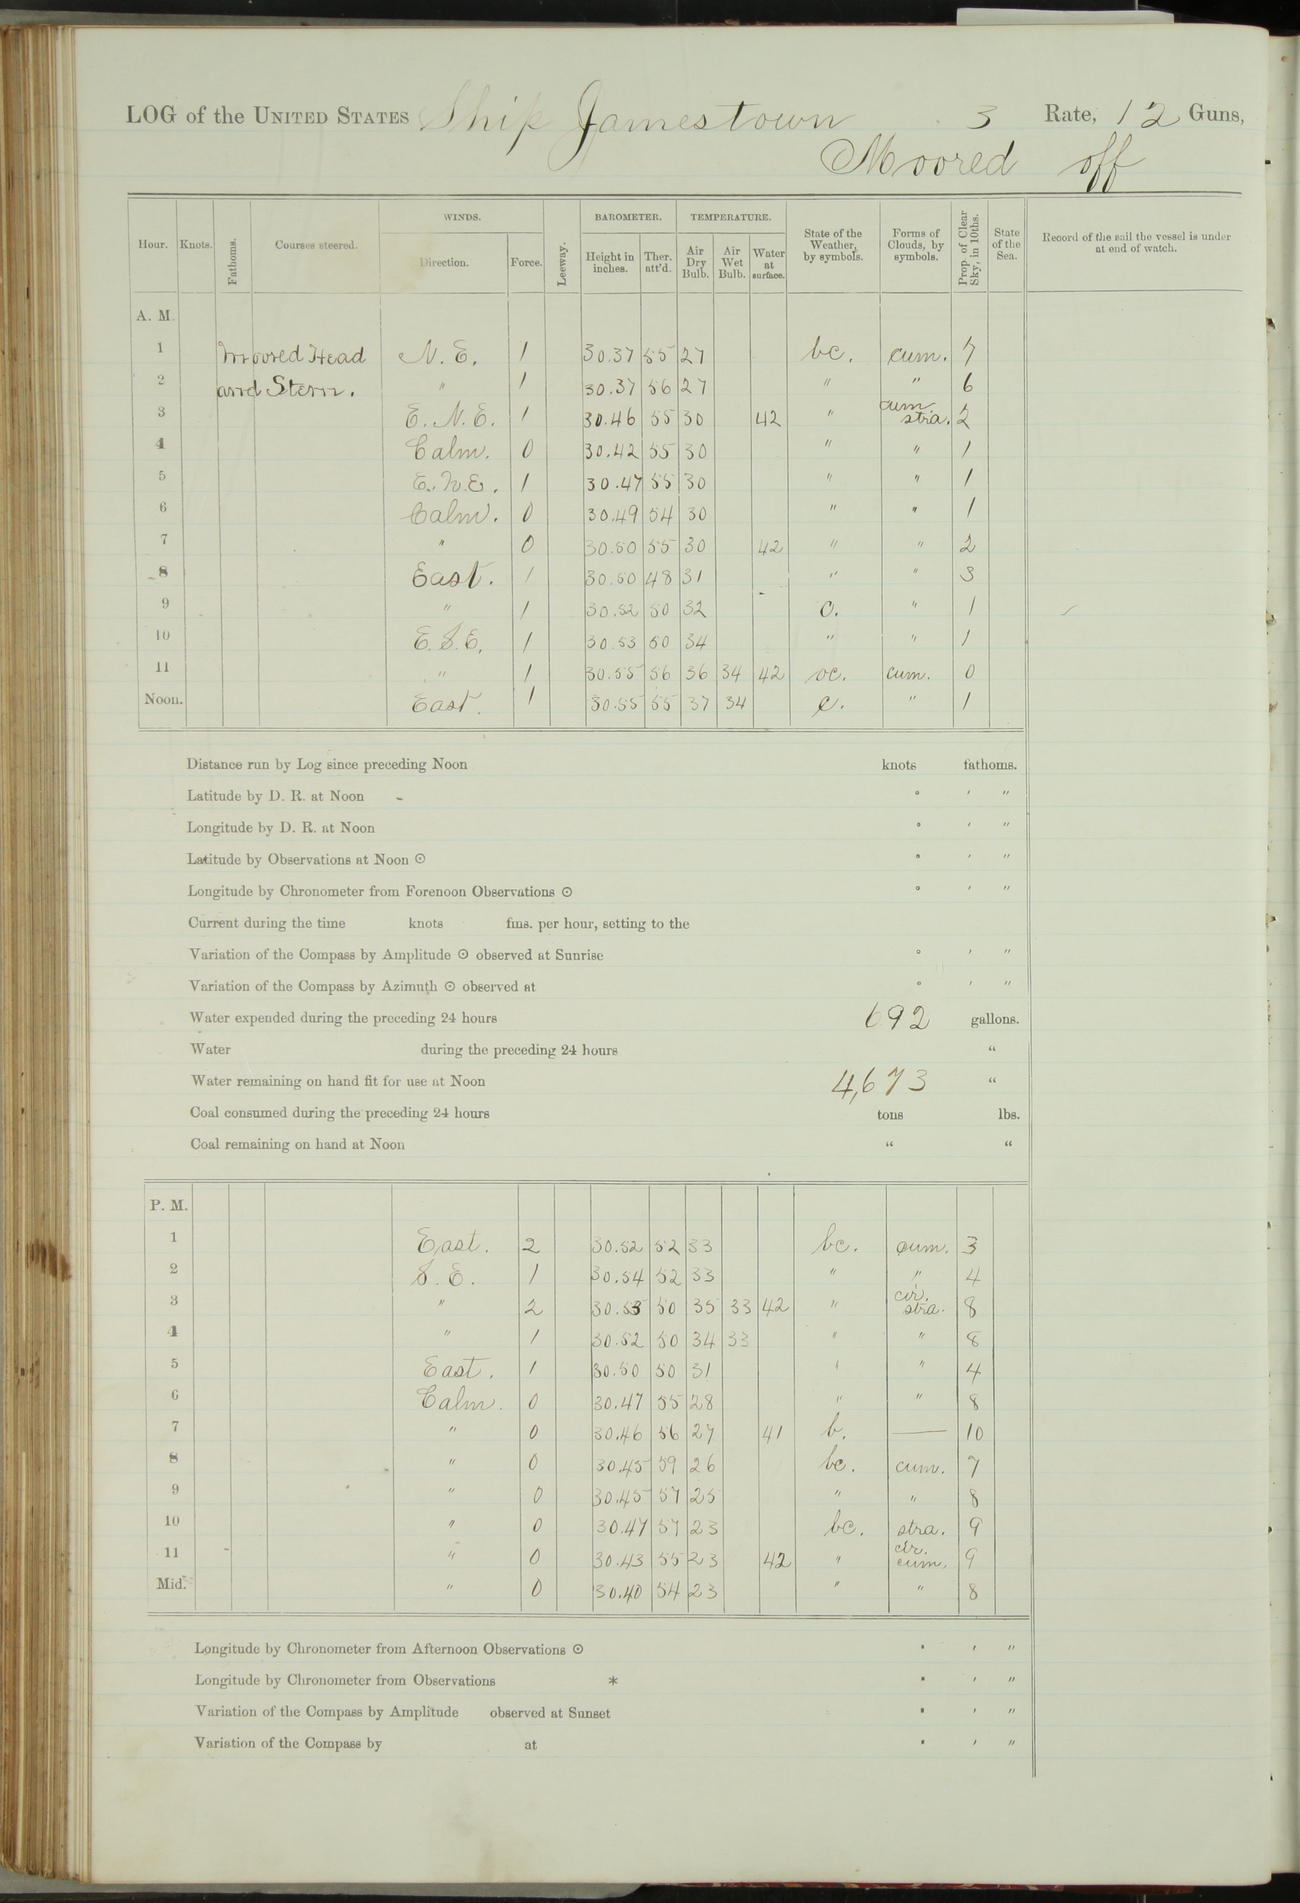 LOG of the UNITED STATES Ship Jamestown 3 Rate, 12 Guns,
Moored off
Hour. Knots. Fathoms. Courses steered. WINDS. Direction. Force. Leeway. BAROMETER. Height in inches. Ther. att'd. TEMPERATURE. Air Dry Bulb. Air Wet Bulb. Water at surface. State of the Weather, by symbols. Forms of Clouds, by symbols. Prop. of Clear Sky, in 10ths. State of the Sea. Record of the sail the vessel is under at end of watch.
A. M.
1 Moored Head N. E. 1 30.37 55 27 bc. cum. 7
2 and Stern. " 1 30.37 56 27 " " 6
3 E. N. E. 1 30.46 55 30 42 " cum. stra. 2
4 Calm. 0 30.42 55 30 " " 1
5 E. N. E. 1 30.47 55 30 " " 1
6 Calm. 0 30.49 54 30 " " 1
7 " 0 30.50 55 30 42 " " 2
8 East. 1 30.50 48 31 " " 3
9 " 1 30.52 50 32 c. " 1
10 E. S. E. 1 30.53 50 34 " " 1
11 " 1 30.55 56 36 34 42 oc. cum. 0
Noon. East. 1 30.55 55 37 34 c. " 1
Distance run by Log since preceding Noon knots fathoms.
Latitude by D. R. at Noon ° ′ ″
Longitude by D. R. at Noon ° ′ ″
Latitude by Observations at Noon ☉ ° ′ ″
Longitude by Chronometer from Forenoon Observations ☉ ° ′ ″
Current during the time knots fms. per hour, setting to the
Variation of the Compass by Amplitude ☉ observed at Sunrise ° ′ ″
Variation of the Compass by Azimuth ☉ observed at ° ′ ″
Water expended during the preceding 24 hours 692 gallons.
Water during the preceding 24 hours "
Water remaining on hand fit for use at Noon 4,673 "
Coal consumed during the preceding 24 hours tons lbs.
Coal remaining on hand at Noon " "
P. M.
1 East. 2 30.52 52 33 bc. cum. 3
2 S. E. 1 30.54 52 33 " " 4
3 " 2 30.53 50 35 33 42 " cir. stra. 8
4 " 1 30.52 50 34 33 " " 8
5 East. 1 30.50 50 31 " " 4
6 Calm. 0 30.47 55 28 " " 8
7 " 0 30.46 56 27 41 b. — 10
8 " 0 30.45 59 26 bc. cum. 7
9 " 0 30.45 57 25 " " 8
10 " 0 30.47 57 23 bc. stra. 9
11 " 0 30.43 55 23 42 " cir. cum. 9
Mid. " 0 30.40 54 23 " " 8
Longitude by Chronometer from Afternoon Observations ☉ ° ′ ″
Longitude by Chronometer from Observations * ° ′ ″
Variation of the Compass by Amplitude observed at Sunset ° ′ ″
Variation of the Compass by at ° ′ ″